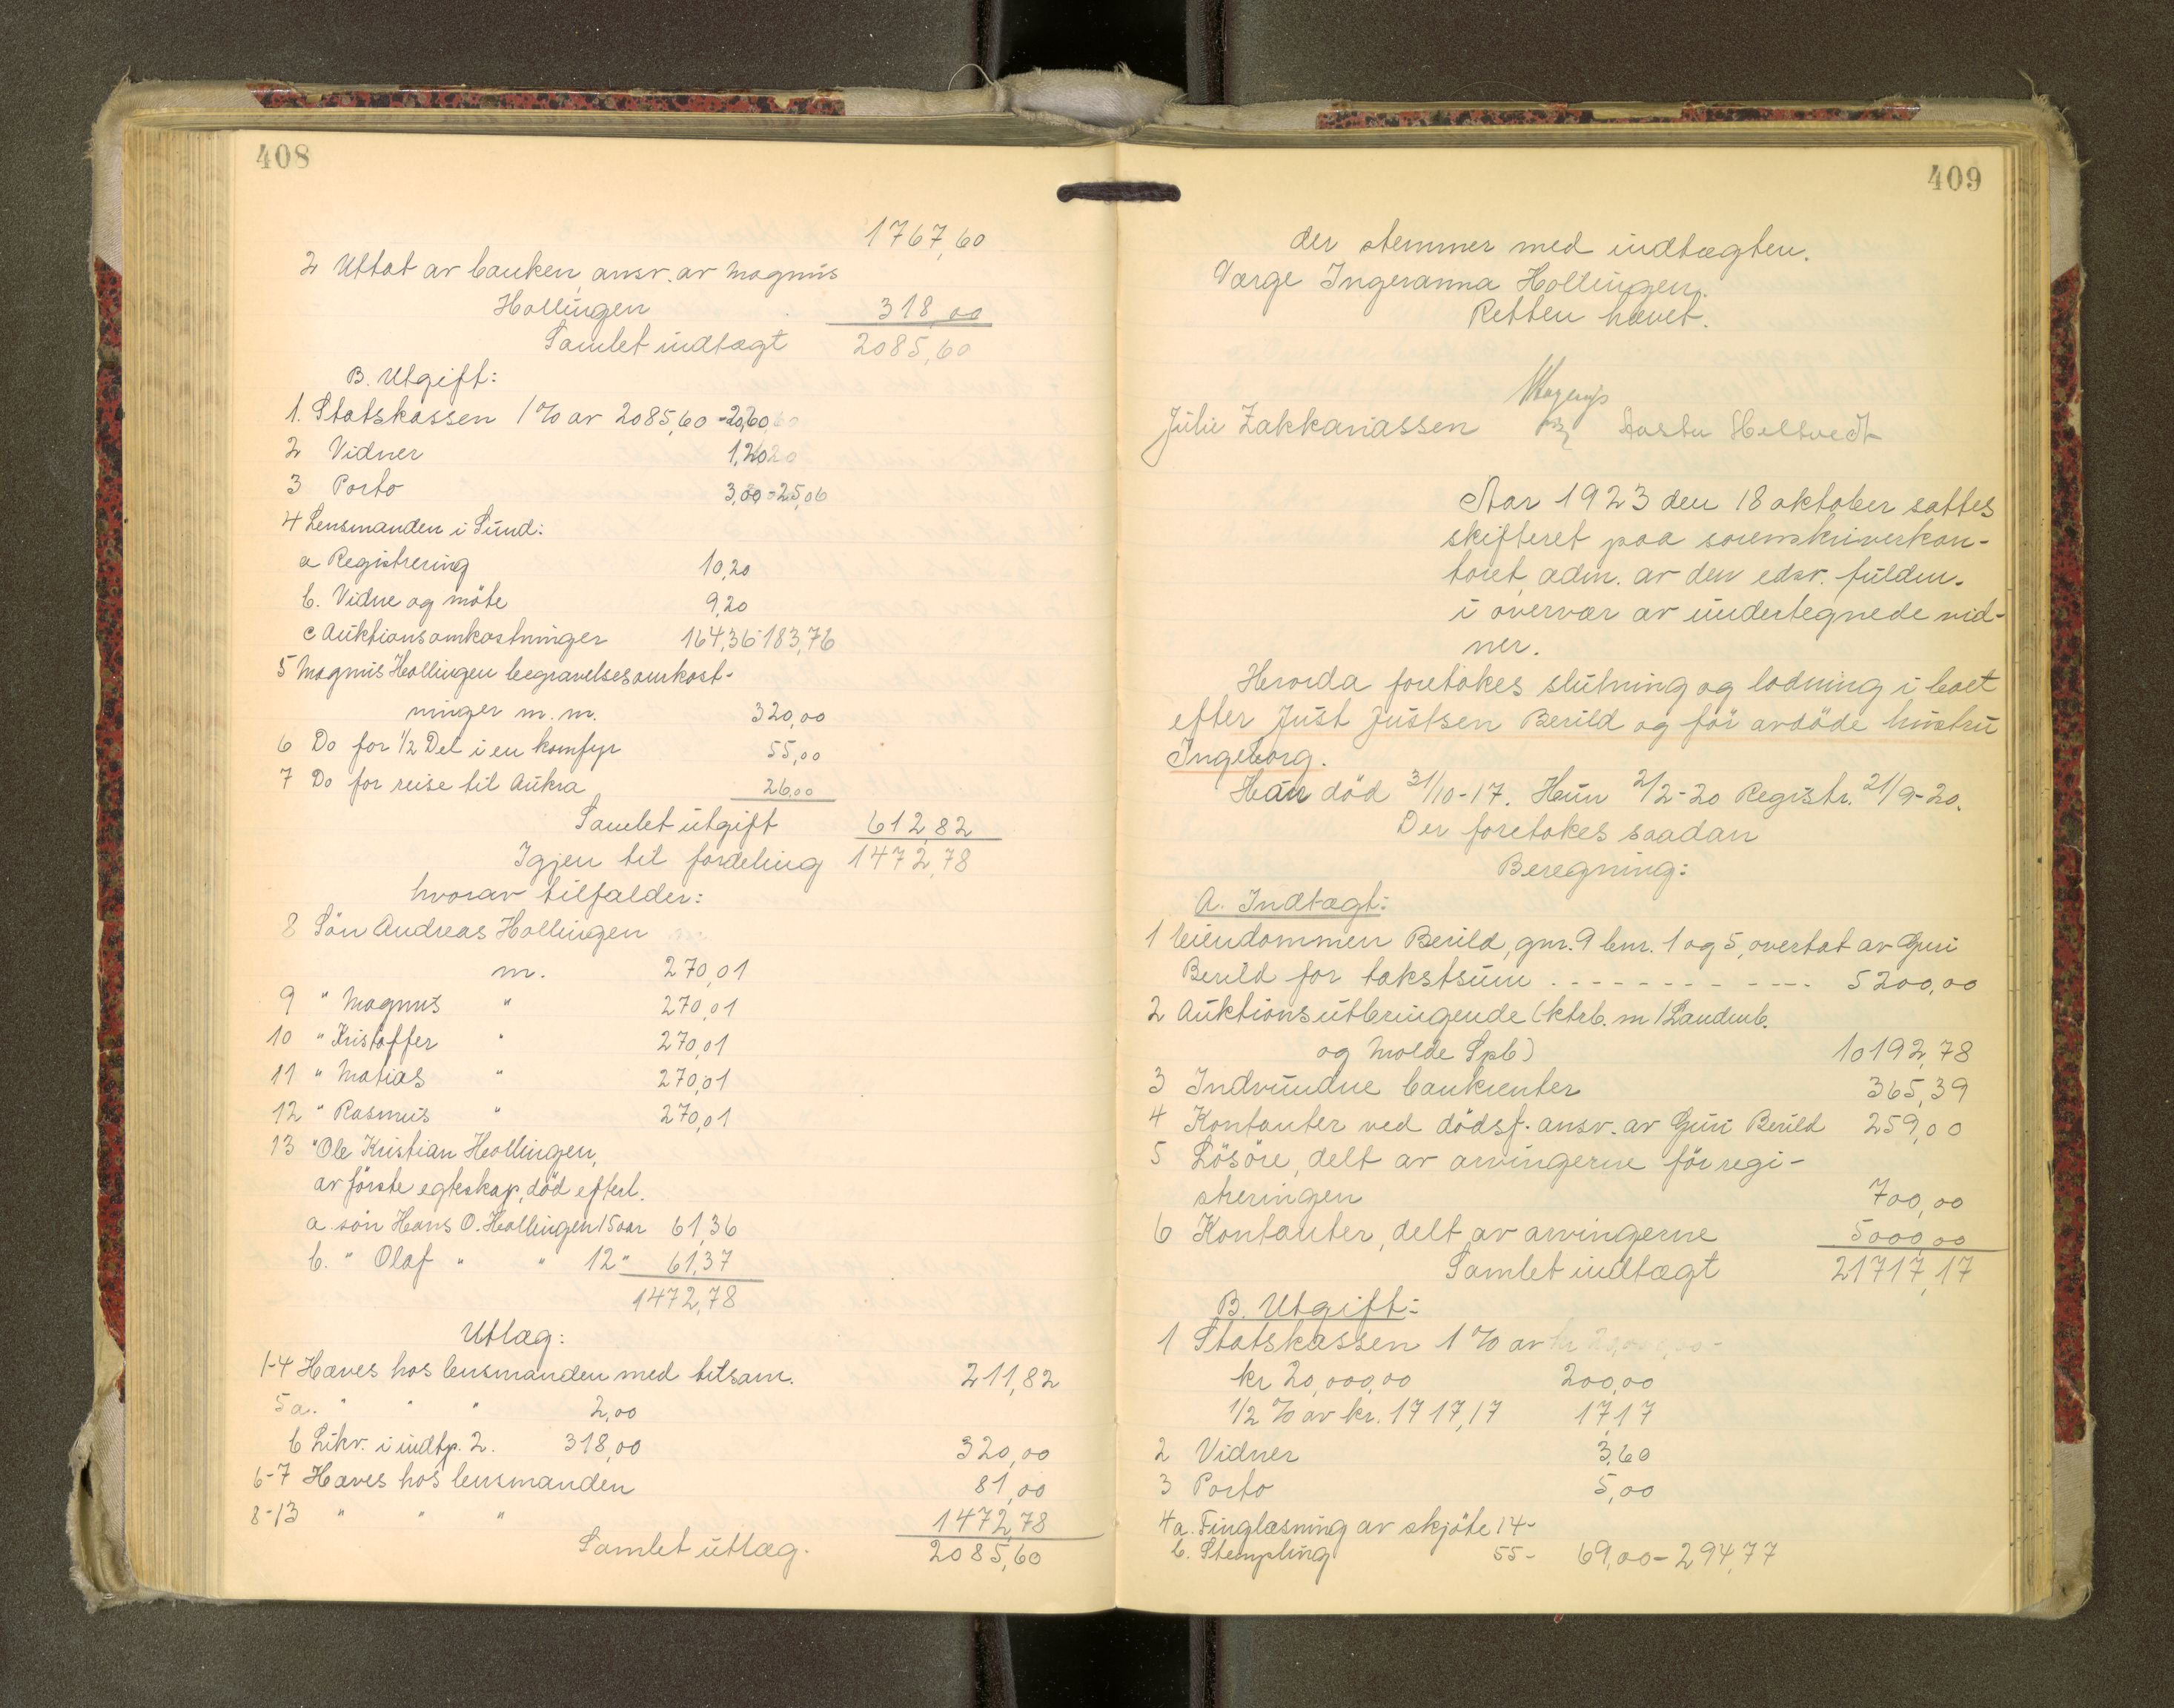 408
1767,60
2 Uttat av banken, ansv. av Magnus
Hollingen 318,00
Samlet indtægt 2085,60
B. Utgift:
1. Statskassen 1% av 2085,60 - 20,60
2 Vidner 1,20
3 Porto 3,00 - 25,06
4 Lensmanden i Sund:
a Registrering 10,20
b. Vidne og möte 9,20
c Auktionsomkostninger 164,36 183,76
5 Magnus Hollingen begravelsesomkost-
ninger m.m. 320,00
6 Do for 1/2 Del i en komfyr 55,00
7 Do for reise til Aukra 26,00
Samlet utgift 612,82
Igjen til fordeling 1472,78
hvorav tilfalder:
8 Sön Andreas Hollingen
m. 270,01
9 " Magnus " 270,01
10 " Kristoffer " 270,01
11 " Matias " 270,01
12 " Rasmus " 270,01
13 " Ole Kristian Hollingen,
av förste egteskap, död efterl.
a. sön Hans O. Hollingen 15 aar 61,36
b. " Olaf " " 12 " 61,37
1472,78
Utlæg:
1-4 Hæves hos lensmanden med tilsam. 211,82
5a. " " " 2,00
b Likv. i indtp. 2. 318,00 320,00
6-7 Hæves hos lensmanden 81,00
8-13 " " " 1472,78
Samlet utlæg. 2085,60
409
der stemmer med indtægten.
Værge Ingeranna Hollingen.
Retten hævet.
Julie Zakkariassen Aasta Heltvedt
Aar 1923 den 18 oktober sattes
skifteret paa sorenskriverkon-
toret, adm. av den edsv. fuldm.
i overvær av undertegnede vid-
ner.
Hvorda foretokes slutning og lodning i boet
efter Just Justsen Berild og för avdöde hustru
Ingeborg.
Han död 31/10-17. Hun 21/2-20 Registr. 21/9-20.
Der foretokes saadan
Beregning:
A. Indtægt:
1 Eiendommen Berild, gnr. 9 bnr. 1 og 5, overtat av Guri
Berild for takstsum 5200,00
2 Auktionsutbringende (ktrb. m/Landmb.
og Molde Spb) 10192,78
3 Indvundne bankrenter 365,39
4 Kontanter ved dödsf. ansv. av Guri Berild 259,00
5 Lösöre, delt av arvingerne för regi-
streringen 700,00
6 Kontanter, delt av arvingerne 5000,00
Samlet indtægt 21717,17
B. Utgift:
1 Statskassen 1% av
kr 20,000,00 200,00
1/2 % av kr. 1717,17 17,17
2 Vidner 3,60
3 Porto 5,00
4a. Tinglæsning av skjöte 14-
b. Stempling 55- 69,00 - 294,77